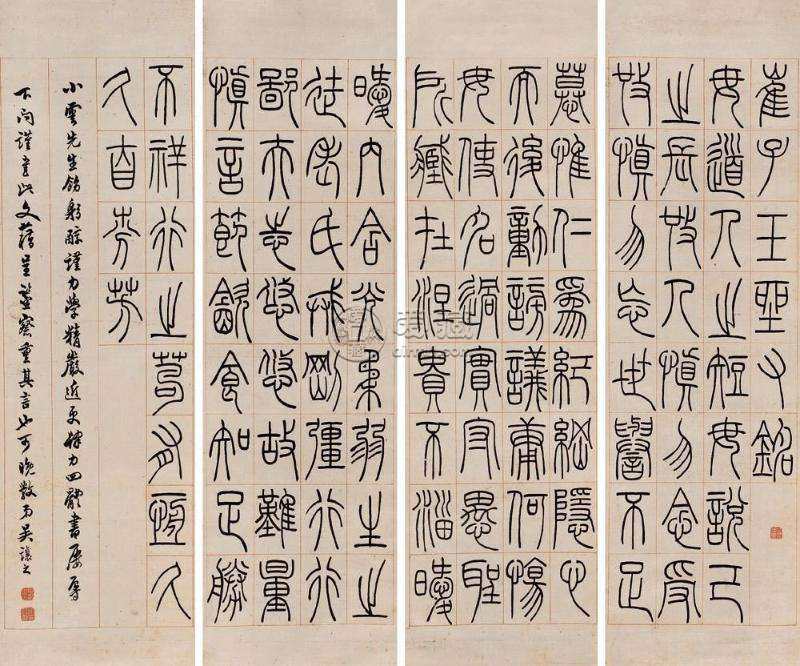 崔子玉坐右銘
毋道人之短毋說己
之長施人慎勿念受
施慎勿忘世譽不足
慕惟仁為紀綱隱心
而後動謗議庸何傷
毋使名過實守愚聖
所臧在涅貴不淄曖
曖內含光柔弱生之
徒老氏戒剛彊行行
鄙夫志悠悠故難量
慎言節飲食知足勝
不祥行之苟有恆久
久自芬芳
小雲先生飭躬醇謹力學精嚴近更肆力四體書屢辱
下問謹書此文藉呈鑒察重其言也教弟吳讓之